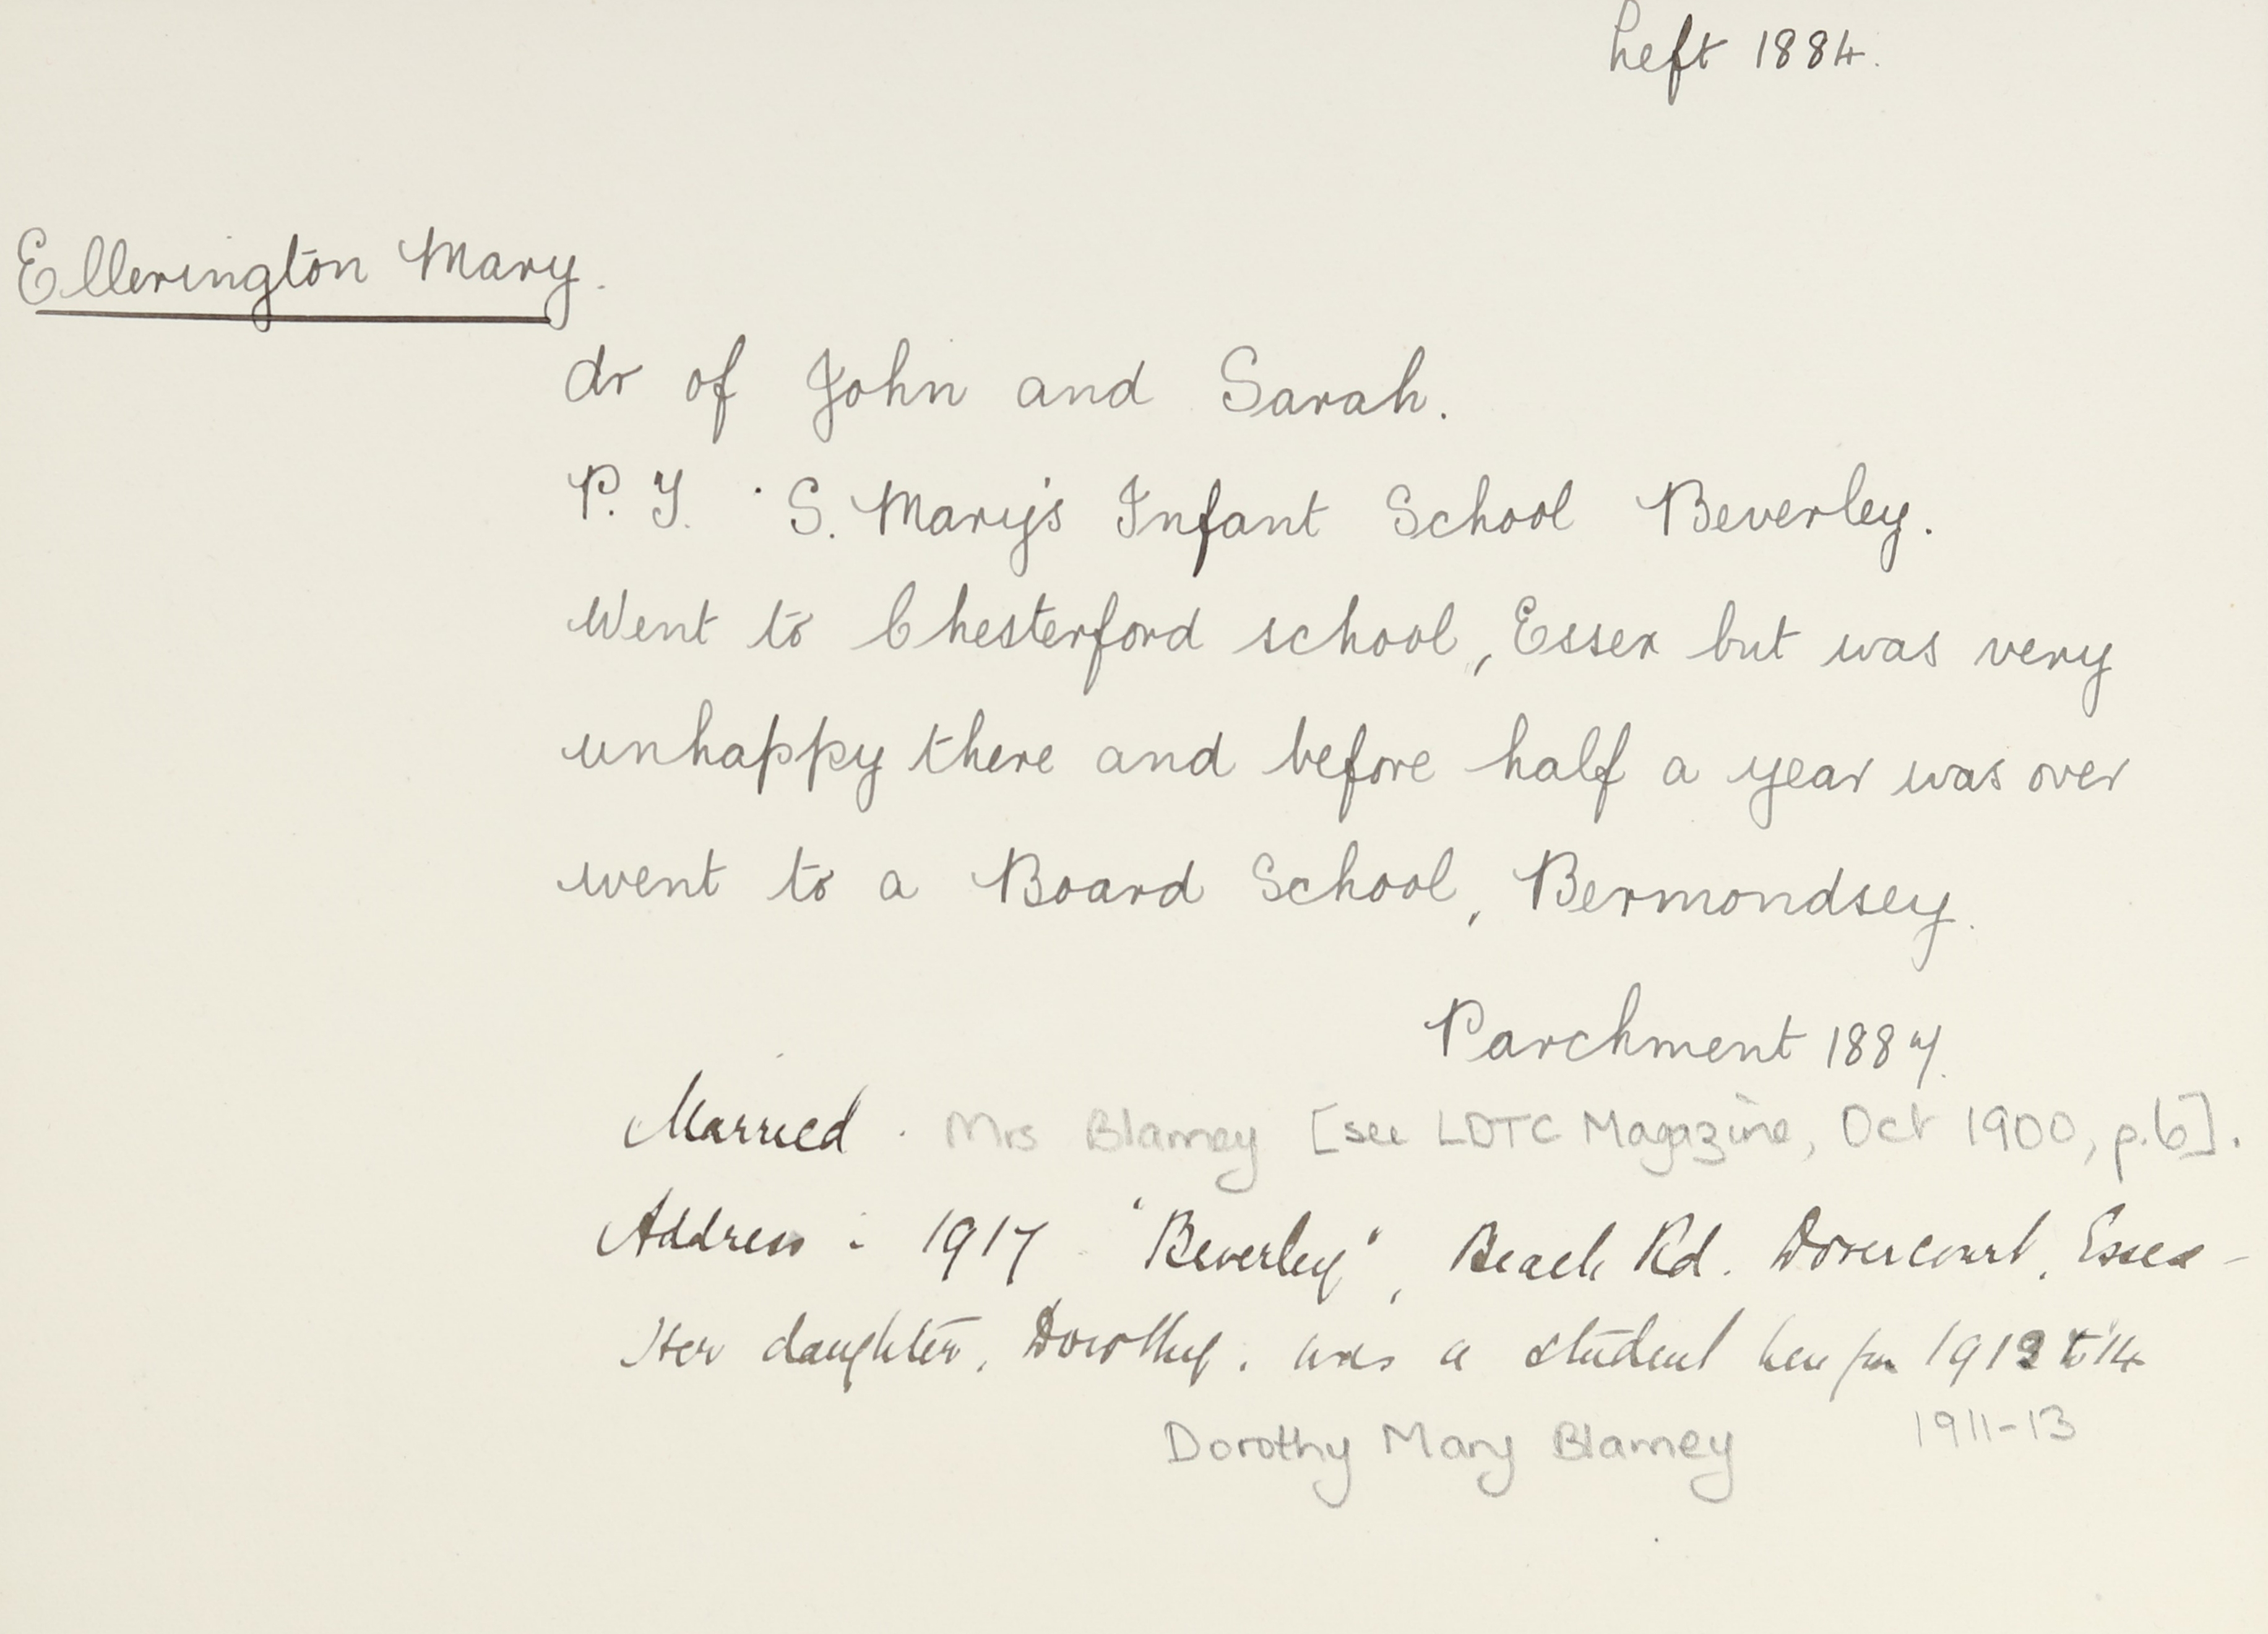 Left 1884.
Ellerington Mary.
dr of John and Sarah.
P. T. S. Mary's Infant School Beverley.
Went to Chesterford school, Essex but was very
unhappy there and before half a year was over
went to a Board School, Bermondsey.
Parchment 1887.
Married. Mrs Blamey [see LDTC Magazine, Oct 1900, p.6].
Address: 1917 "Beverley", Beach Rd. Dovercourt, Essex-
Her daughter, Dorothy, was a student here from 1912 to '14
Dorothy Mary Blamey 1911-13